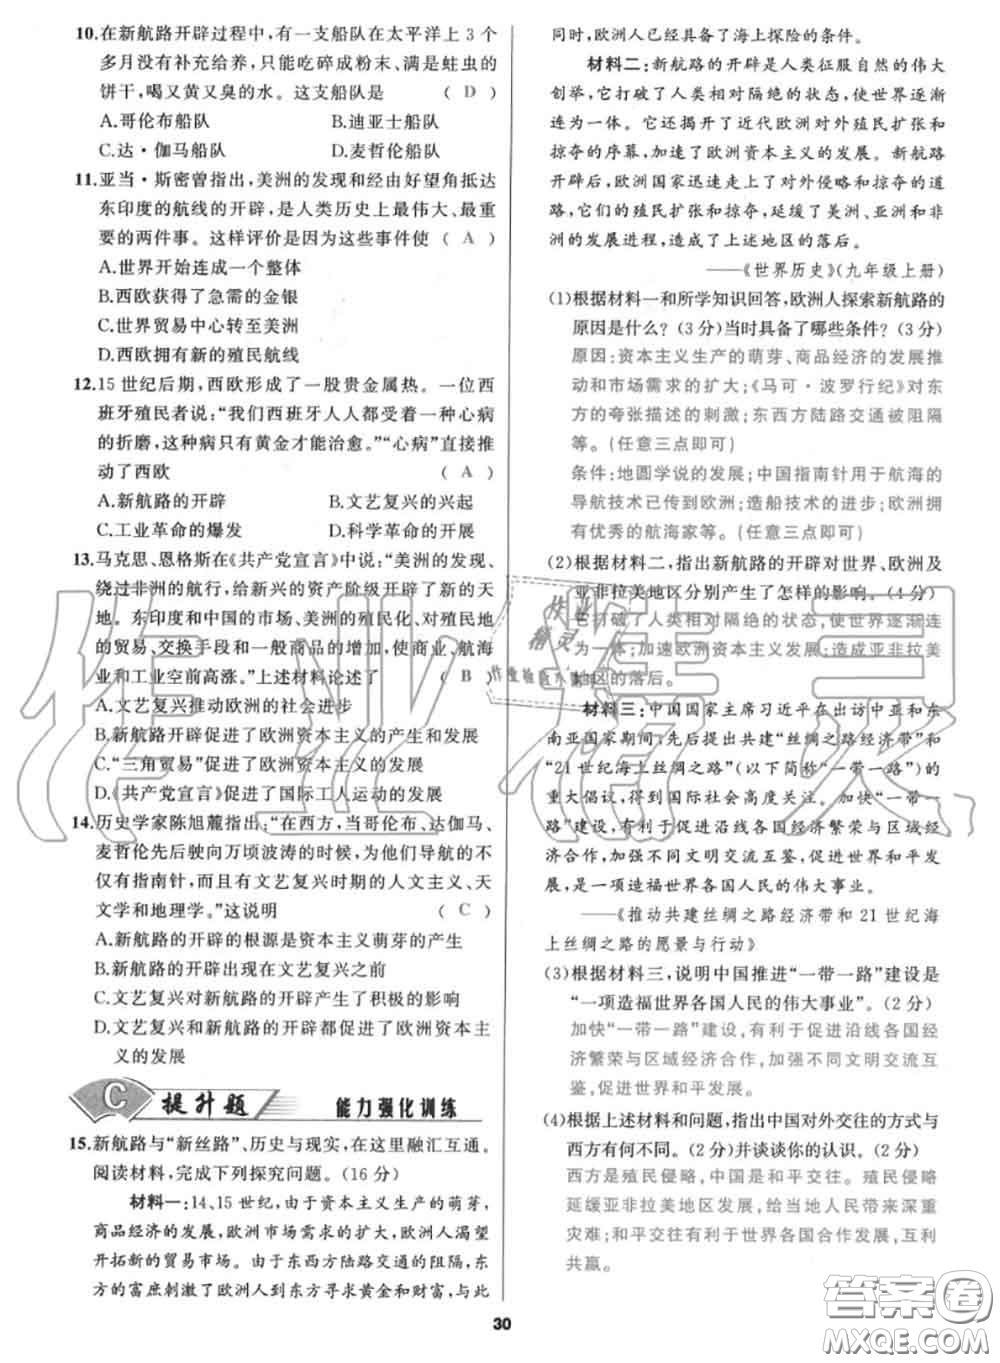 10.在新航路开辟过程中,有一支船队在太平洋上 3 个
多月没有补充给养,只能吃碎成粉末、满是蛀虫的
饼干,喝又黄又臭的水。这支船队是 ( D )
A.哥伦布船队 B.迪亚士船队
C.达·伽马船队 D.麦哲伦船队
11.亚当·斯密曾指出,美洲的发现和经由好望角抵达
东印度的航线的开辟,是人类历史上最伟大、最重
要的两件事。这样评价是因为这些事件使 ( A )
A.世界开始连成一个整体
B.西欧获得了急需的金银
C.世界贸易中心转至美洲
D.西欧拥有新的殖民航线
12.15 世纪后期,西欧形成了一股贵金属热。一位西
班牙殖民者说:“我们西班牙人人都受着一种心病
的折磨,这种病只有黄金才能治愈。”“心病”直接推
动了西欧 ( A )
A.新航路的开辟 B.文艺复兴的兴起
C.工业革命的爆发 D.科学革命的开展
13.马克思、恩格斯在《共产党宣言》中说:“美洲的发现、
绕过非洲的航行,给新兴的资产阶级开辟了新的天
地。东印度和中国的市场、美洲的殖民化、对殖民地
的贸易、交换手段和一般商品的增加,使商业、航海
业和工业空前高涨。”上述材料论述了 ( B )
A.文艺复兴推动欧洲的社会进步
B.新航路开辟促进了欧洲资本主义的产生和发展
C.“三角贸易”促进了欧洲资本主义的发展
D.《共产党宣言》促进了国际工人运动的发展
14.历史学家陈旭麓指出:“在西方,当哥伦布、达伽马、
麦哲伦先后驶向万顷波涛的时候,为他们导航的不
仅有指南针,而且有文艺复兴时期的人文主义、天
文学和地理学。”这说明 ( C )
A.新航路的开辟的根源是资本主义萌芽的产生
B.新航路的开辟出现在文艺复兴之前
C.文艺复兴对新航路的开辟产生了积极的影响
D.文艺复兴和新航路的开辟都促进了欧洲资本主
义的发展
C 提升题 能力强化训练
15.新航路与“新丝路”、历史与现实,在这里融汇互通。
阅读材料,完成下列探究问题。(16 分)
材料一:14、15 世纪,由于资本主义生产的萌芽,
商品经济的发展,欧洲市场需求的扩大,欧洲人渴望
开拓新的贸易市场。由于东西方陆路交通的阻隔,东
方的富庶刺激了欧洲人到东方寻求黄金和财富,与此
同时,欧洲人已经具备了海上探险的条件。
材料二:新航路的开辟是人类征服自然的伟大
创举,它打破了人类相对隔绝的状态,使世界逐渐
连为一体。它还揭开了近代欧洲对外殖民扩张和
掠夺的序幕,加速了欧洲资本主义的发展。新航路
开辟后,欧洲国家迅速走上了对外侵略和掠夺的道
路,它们的殖民扩张和掠夺,延缓了美洲、亚洲和非
洲的发展进程,造成了上述地区的落后。
——《世界历史》(九年级上册)
(1)根据材料一和所学知识回答,欧洲人探索新航路的
原因是什么?(3 分)当时具备了哪些条件?(3 分)
原因:资本主义生产的萌芽、商品经济的发展推
动和市场需求的扩大;《马可·波罗行纪》对东
方的夸张描述的刺激;东西方陆路交通被阻隔
等。(任意三点即可)
条件:地圆学说的发展;中国指南针用于航海的
导航技术已传到欧洲;造船技术的进步;欧洲拥
有优秀的航海家等。(任意三点即可)
(2)根据材料二,指出新航路的开辟对世界、欧洲及
亚非拉美地区分别产生了怎样的影响。(4 分)
它打破了人类相对隔绝的状态,使世界逐渐连
为一体;加速欧洲资本主义发展;造成亚非拉美
地区的落后。
材料三:中国国家主席习近平在出访中亚和东
南亚国家期间,先后提出共建“丝绸之路经济带”和
“21 世纪海上丝绸之路”(以下简称“一带一路”)的
重大倡议,得到国际社会高度关注。加快“一带一
路”建设,有利于促进沿线各国经济繁荣与区域经
济合作,加强不同文明交流互鉴,促进世界和平发
展,是一项造福世界各国人民的伟大事业。
——《推动共建丝绸之路经济带和 21 世纪海
上丝绸之路的愿景与行动》
(3)根据材料三,说明中国推进“一带一路”建设是
“一项造福世界各国人民的伟大事业”。(2 分)
加快“一带一路”建设,有利于促进沿线各国经
济繁荣与区域经济合作,加强不同文明交流互
鉴,促进世界和平发展。
(4)根据上述材料和问题,指出中国对外交往的方式与
西方有何不同。(2 分)并谈谈你的认识。(2 分)
西方是殖民侵略,中国是和平交往。殖民侵略
延缓亚非拉美地区发展,给当地人民带来深重
灾难;和平交往有利于世界各国合作发展,互利
共赢。
30
作业精灵
答案圈
MXQE.COM